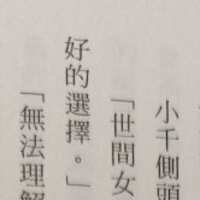 小千側頭
「世間女
好的選擇。」
「無法理解